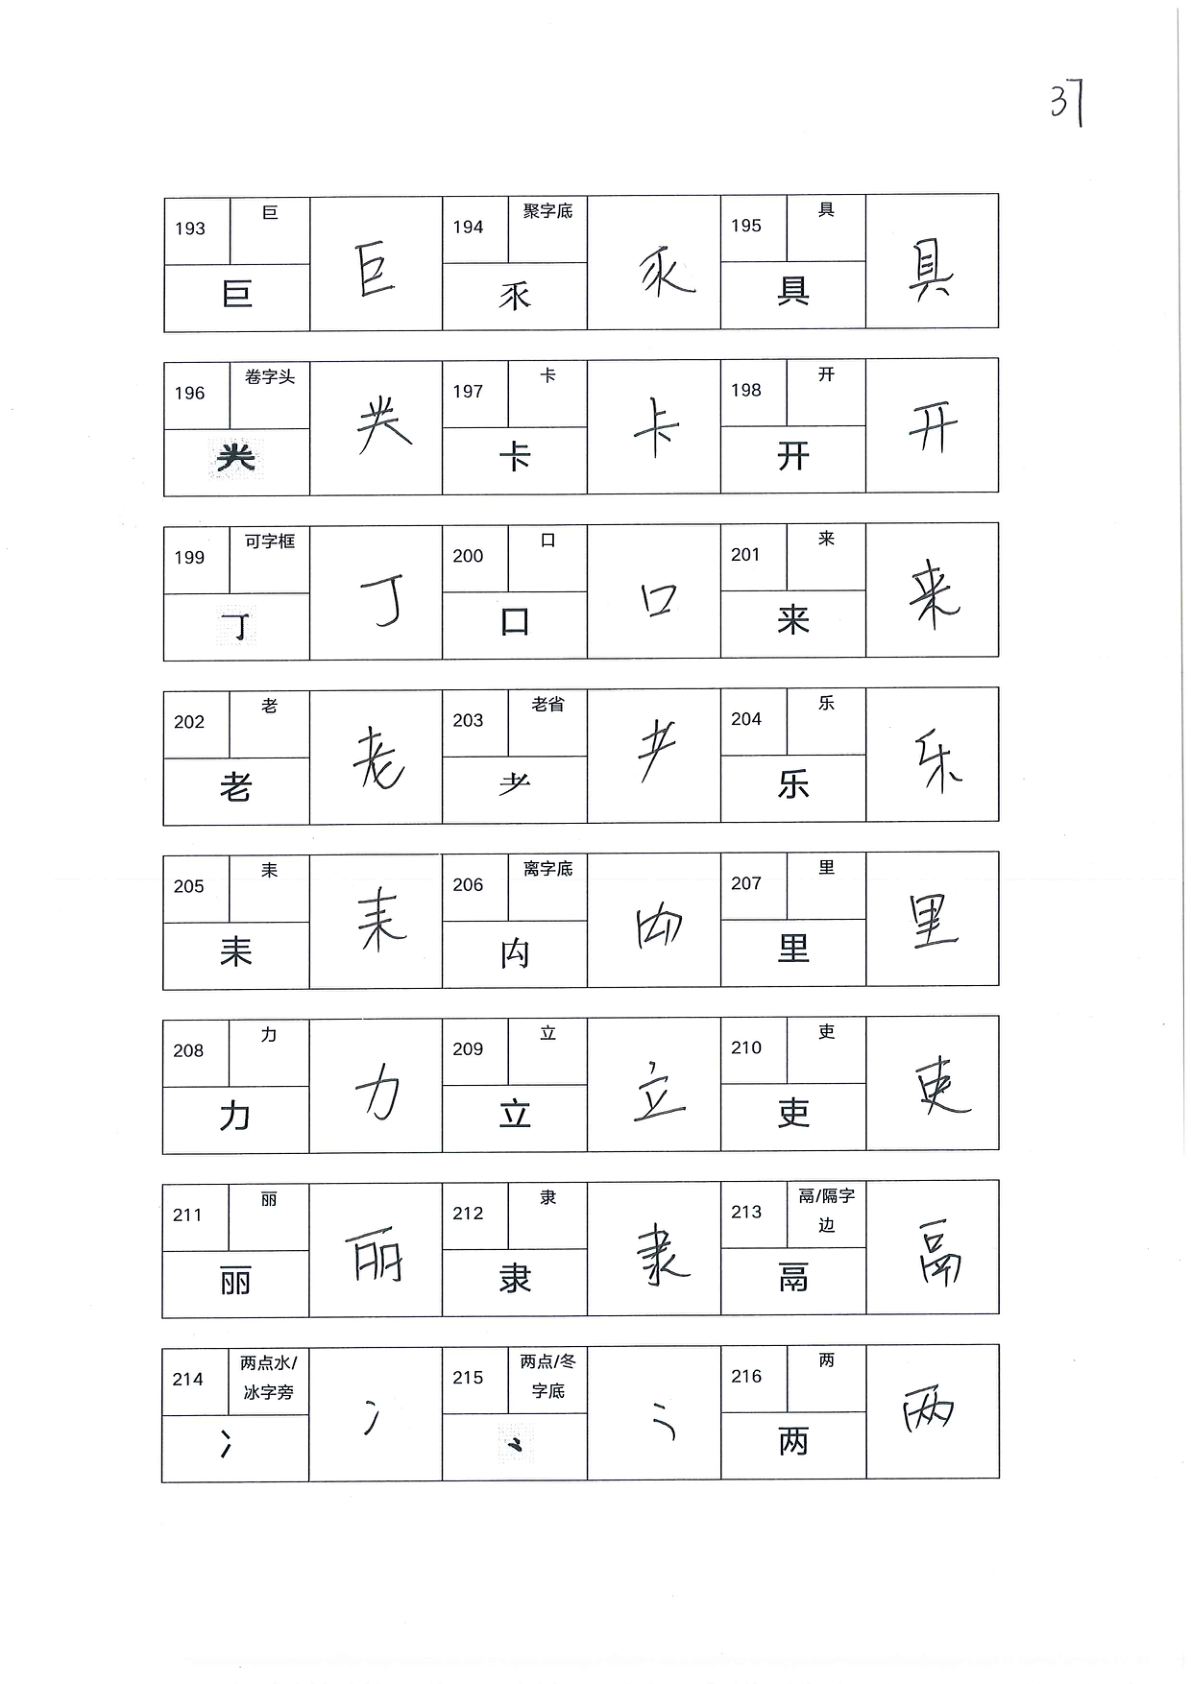 37
193 巨 巨 巨 194 聚字底 乑 乑 195 具 具 具
196 卷字头 龹 龹 197 卡 卡 卡 198 开 开 开
199 可字框 丁 丁 200 口 口 口 201 来 来 来
202 老 老 老 203 老省 耂 耂 204 乐 乐 乐
205 耒 耒 耒 206 离字底 禸 禸 207 里 里 里
208 力 力 力 209 立 立 立 210 吏 吏 吏
211 丽 丽 丽 212 隶 隶 隶 213 鬲/隔字
边 鬲 鬲
214 两点水/
冰字旁 冫 冫 215 两点/冬
字底 ⺀ ⺀ 216 两 两 两